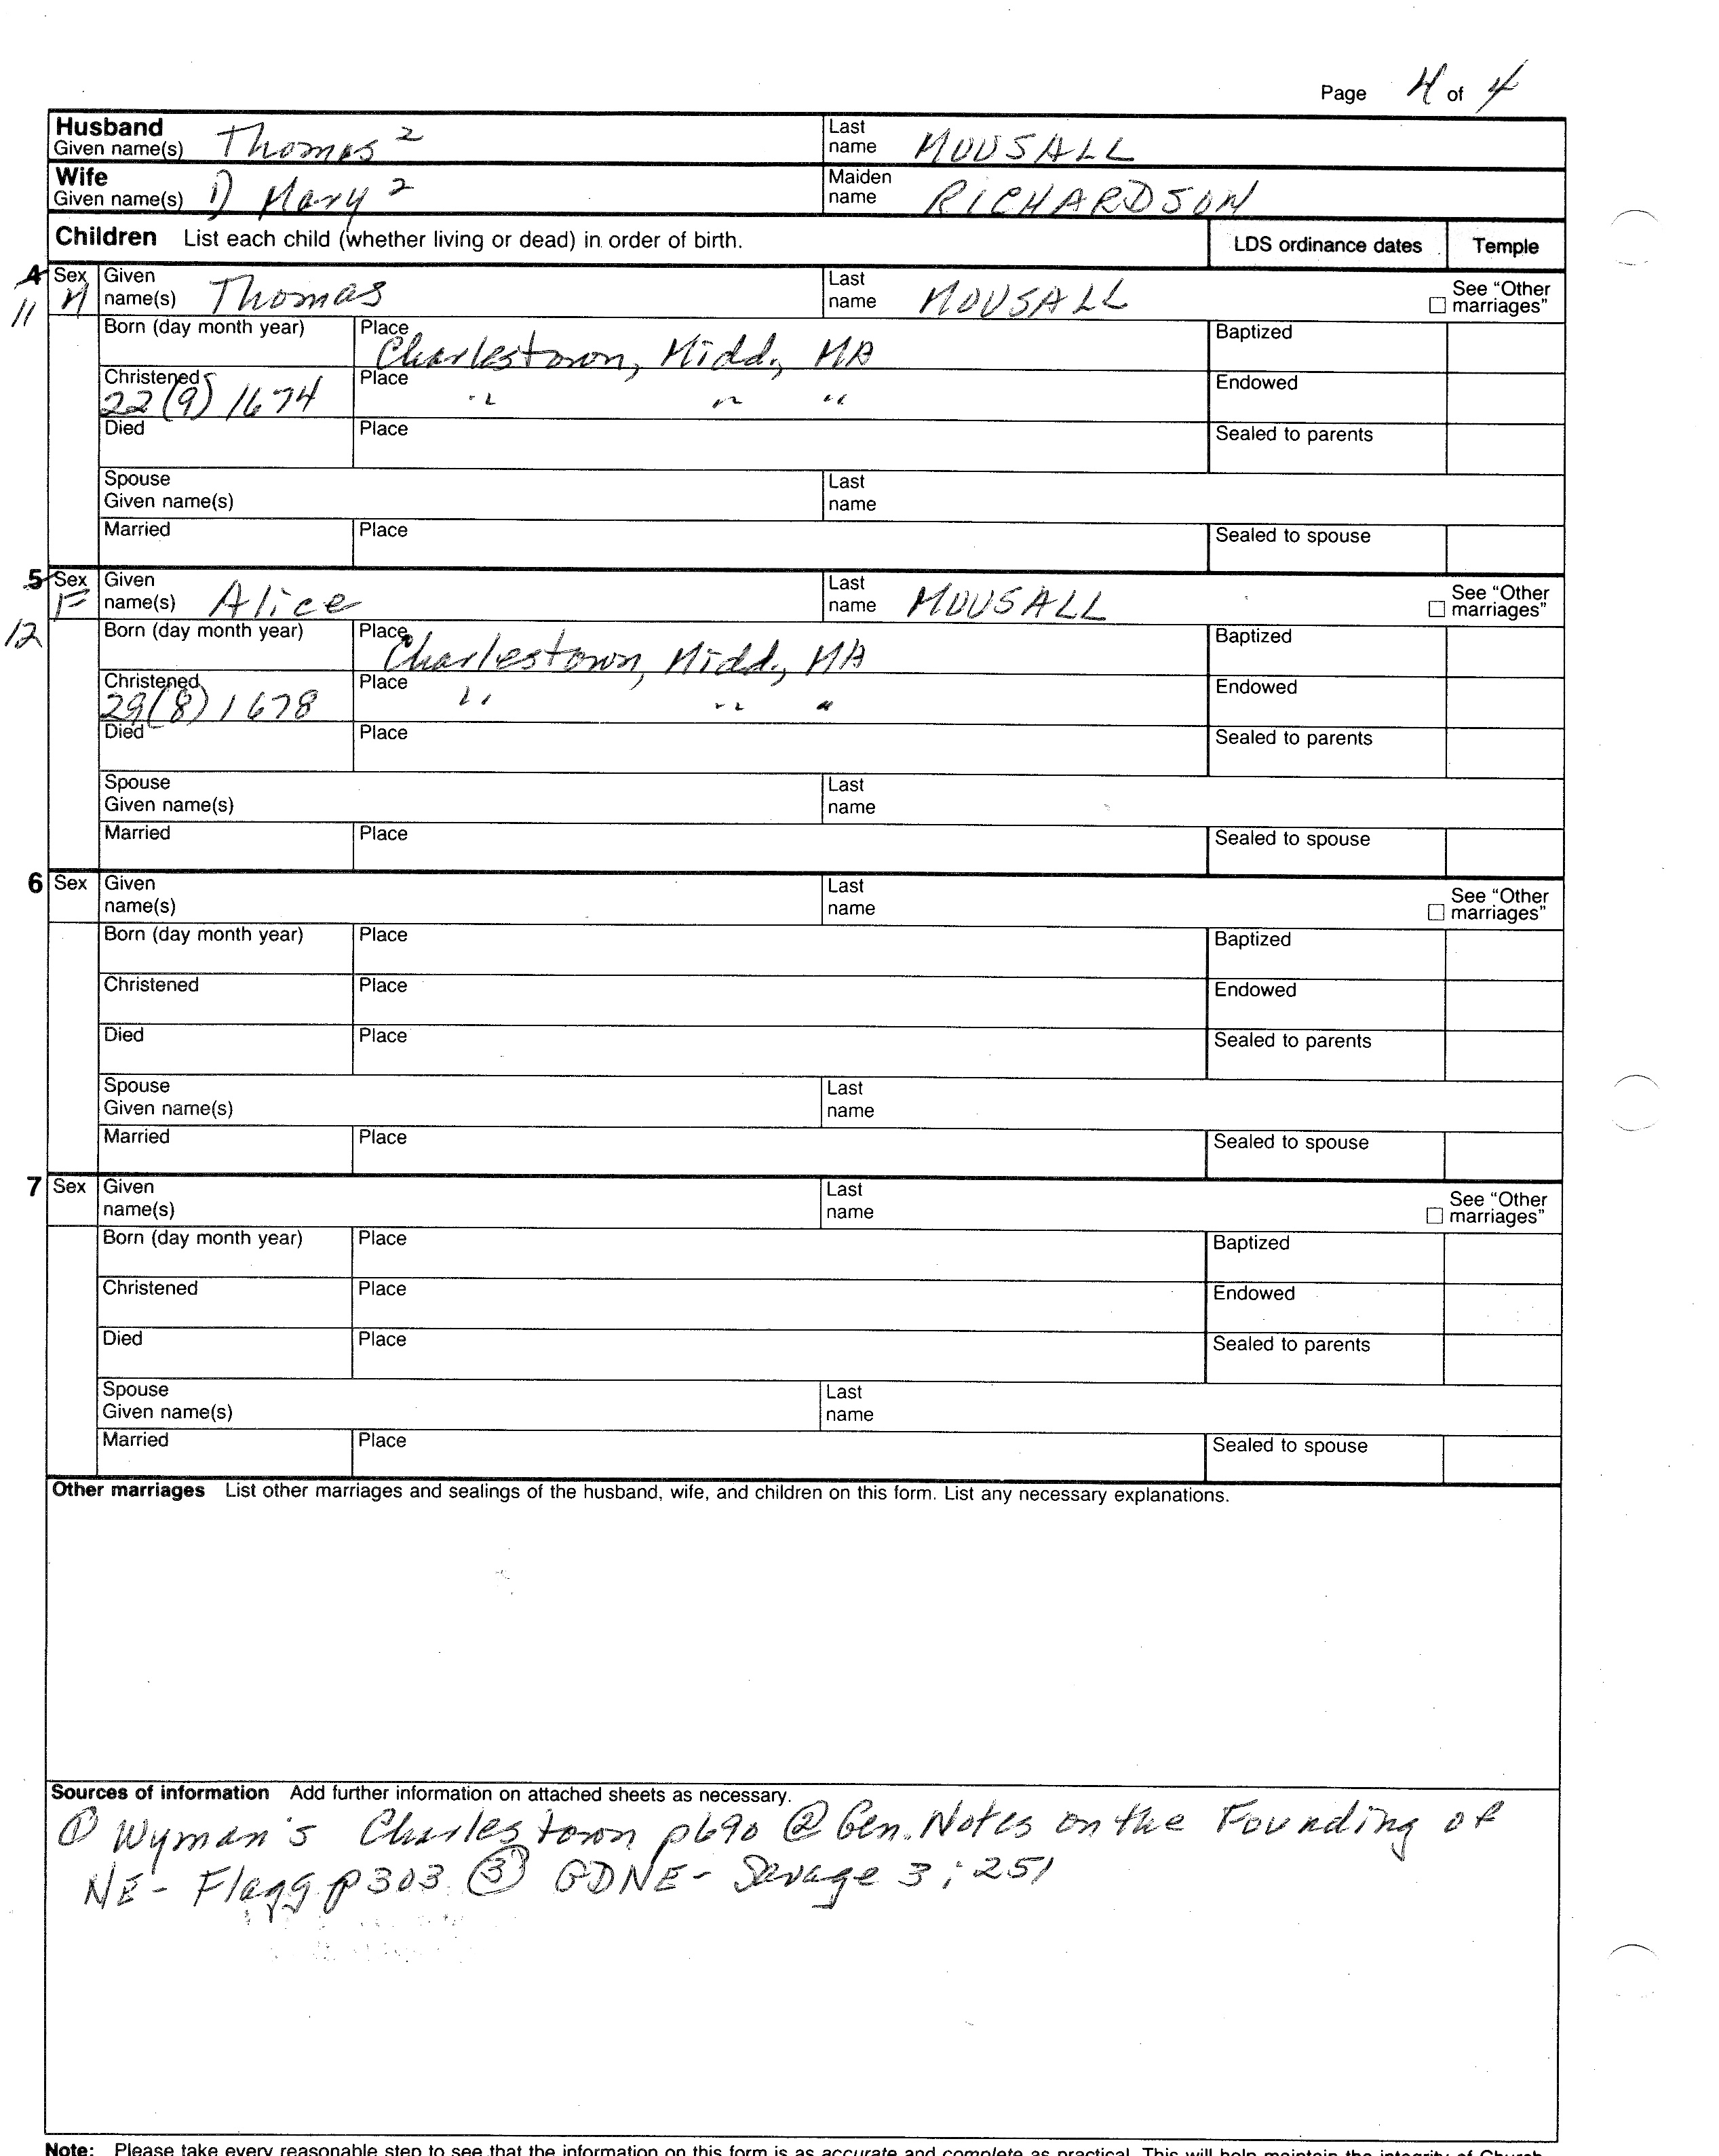 Page 4 of 4
Husband Given name(s) Thomas 2 Last name MOUSALL
Wife Given name(s) 1) Mary 2 Maiden name RICHARDSON
Children List each child (whether living or dead) in order of birth. LDS ordinance dates Temple
4 11 Sex M Given name(s) Thomas Last name MOUSALL See "Other marriages"
Born (day month year) Place Charlestown, Midd., MA Baptized
Christened 22(9) 1674 Place " " " Endowed
Died Place Sealed to parents
Spouse Given name(s) Last name
Married Place Sealed to spouse
5 12 Sex F Given name(s) Alice Last name MOUSALL See "Other marriages"
Born (day month year) Place Charlestown, Midd., MA Baptized
Christened 29(8) 1678 Place " " " Endowed
Died Place Sealed to parents
Spouse Given name(s) Last name
Married Place Sealed to spouse
6 Sex Given name(s) Last name See "Other marriages"
Born (day month year) Place Baptized
Christened Place Endowed
Died Place Sealed to parents
Spouse Given name(s) Last name
Married Place Sealed to spouse
7 Sex Given name(s) Last name See "Other marriages"
Born (day month year) Place Baptized
Christened Place Endowed
Died Place Sealed to parents
Spouse Given name(s) Last name
Married Place Sealed to spouse
Other marriages List other marriages and sealings of the husband, wife, and children on this form. List any necessary explanations.
Sources of information Add further information on attached sheets as necessary.
① Wyman's Charlestown p690 ② Gen. Notes on the Founding of
NE - Flagg p303 ③ GDNE - Savage 3:251
Note: Please take every reasonable step to see that the information on this form is as accurate and complete as practical. This will help maintain the integrity of Church